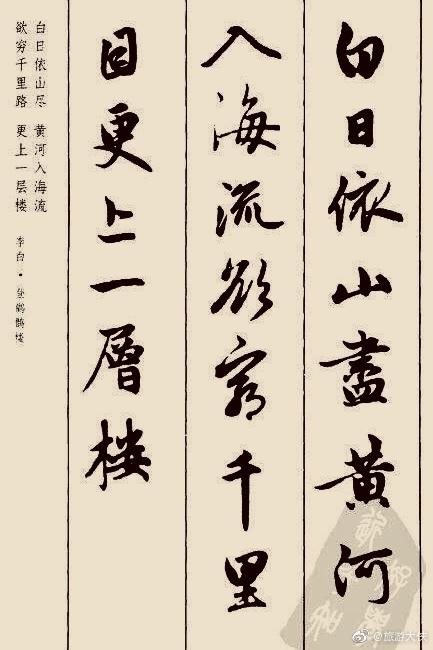 白日依山盡黄河
入海流欲窮千里
目更上一層楼
白日依山尽 黄河入海流
欲穷千里路 更上一层楼
李白·登鹳鹊楼
@旅游大侠